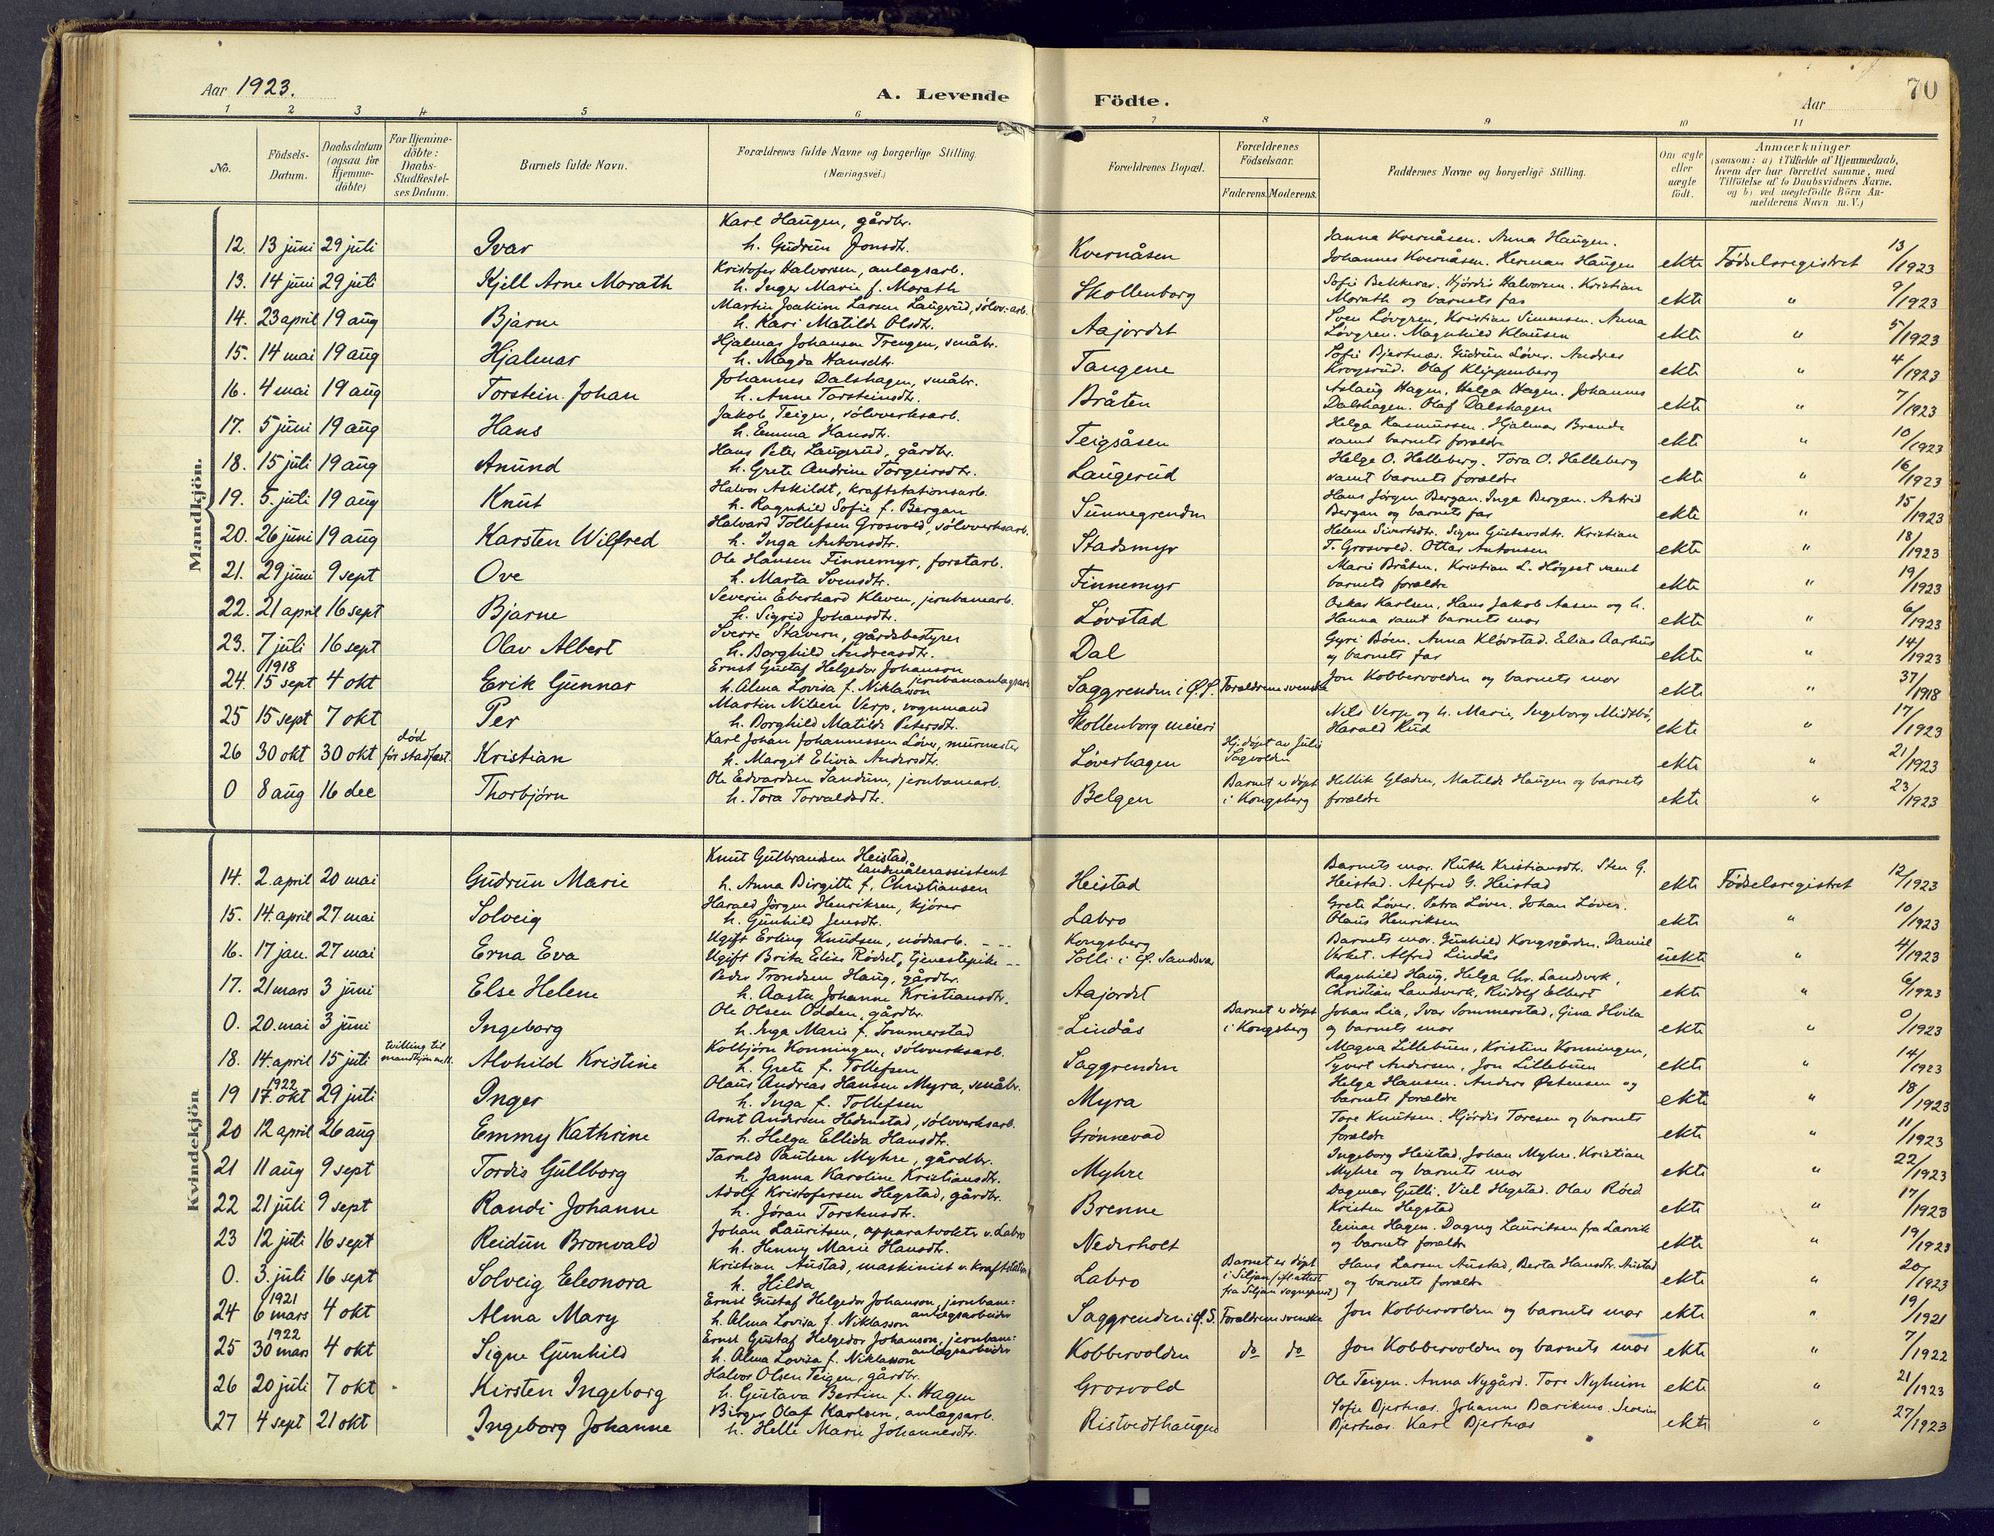 Aar 1923.
A. Levende Födte.
Aar
70
1 2 3 4 5 6 7 8 9 10 11
No.
Födsels-Datum.
Daabsdatum (ogsaa for Hjemmedöbte)
For Hjemmedöbte: Daabs-Stadfæstelses Datum.
Barnets fulde Navn.
Forældrenes fulde Navne og borgerlige Stilling.
(Næringsvei.)
Forældrenes Bopæl.
Forældrenes Födselsaar.
Faderens. Moderens.
Faddernes Navne og borgerlige Stilling.
Om ægte eller uægte födt.
Anmærkninger
(saasom: a) i Tilfælde af Hjemmedaab, hvem der har forrettet samme, med Tilföielse af to Daabsvidners Navne. og b) ved uægtefödte Börn Anmelderens Navn m. V.)
Mandkjön.
Karl Haugen, gårdbr. Janna Kvernåsen. Anna Haugen.
12. 13 juni 29 juli Ivar h. Gudrun Jonsdt. Kvernåsen Johannes Kvernåsen. Herman Haugen ekte Födselsregistret 13/1923
Kristofer Halvorsen, anlegsarb. Sofie Bekkevar. Hjördis Halvorsen. Kristian
13. 14 juni 29 juli Kjell Arne Morath h. Inger Marie f. Morath Skollenborg Morath og barnets far ekte " 9/1923
Martin Joakim Larsen Laugerud, sölvv.arb. Sven Lövgren, Kristian Simensen. Anna
14. 23 april 19 aug Bjarne h. Kari Matilde Olsdt. Aajordet Lövgren. Magnhild Klausen ekte " 5/1923
Hjalmar Johansen Trengen, småbr. Sofie Bjertnæs. Gudrun Löver. Andreas
15. 14 mai 19 aug Hjalmar h. Magda Hansdt. Tangene Krogsrud. Olaf Klippenberg ekte " 4/1923
Johannes Dalshagen, småbr. Aslaug Hagen, Helga Hagen. Johannes
16. 4 mai 19 aug Torstein Johan h. Anne Torsteinsdt. Bråten Dalshagen. Olaf Dalshagen ekte " 7/1923
Jakob Teigen, sölvverksarb. Helga Rasmussen. Hjalmar Brende
17. 5 juni 19 aug Hans h. Emma Hansdt. Teigsåsen samt barnets foreldre ekte " 10/1923
Hans Peter Laugerud, gårdbr. Helge O. Helleberg. Tora O. Helleberg
18. 15 juli 19 aug Anund h. Grete Andrine Torgeirsdt. Laugerud samt barnets foreldre ekte " 16/1923
Halvor Askildt, kraftstationsarb. Hans Jörgen Bergan. Inga Bergan. Astrid
19. 5. juli 19 aug Knut h. Ragnhild Sofie f. Bergan Sunnegrenden Bergan og barnets far ekte " 15/1923
Halvard Tollefsen Grosvold, sölvverksarb. Helene Sivertsdt. Signe Gustavsdt. Kristian
20. 26 juni 19 aug Karsten Wilfred h. Inga Antonsdt. Stadsmyr T. Grosvold. Ottar Antonsen ekte " 18/1923
Ole Hansen Finnemyr, forstarb. Marie Bråten. Kristian L. Högset samt
21. 29 juni 9 sept Ove h. Marta Svensdt. Finnemyr barnets foreldre ekte " 19/1923
Severin Eberhard Kleven, jernbanearb. Oskar Karlsen, Hans Jakob Aasen og h.
22. 21 april 16 sept Bjarne h. Sigrid Johansdt. Lövstad Hanna samt barnets mor ekte " 6/1923
Sverre Stavern, gårdsbestyrer Gyri Böen. Anna Klövstad. Elias Aarhus
23. 7 juli 16 sept Olav Albert h. Borghild Andreasdt. Dal og barnets far ekte " 14/1923
1918 Ernst Gustaf Helgedor Johanson jernbaneanlegsarb
24. 15 sept 4 okt Erik Gunnar h. Alma Lovisa f. Niklasson Saggrenden i Ø.S. Foreldrene svenske Jon Kobbervolden og barnets mor ekte " 37/1918
Martin Nilsen Verp, vognmand Nils Verp og h. Marie, Ingeborg Midtbö,
25 15 sept 7 okt Per h. Borghild Matilde Petersdt. Skollenborg meieri Harald Rud ekte " 17/1923
död Karl Johan Johannessen Löver, murmester Hj.döpt av Julie
26 30 okt 30 okt för stadfæst. Kristian h. Margit Elivia Andersdt. Löverhagen Sagvolden ekte " 21/1923
Ole Edvardsen Sandum, jernbanearb. Barnet er döpt Hellik Gladen, Matilde Haugen og barnets
0 8 aug 16 dec Thorbjörn h. Tora Torvaldsdt. Belgen i Kongsberg foreldre ekte " 23/1923
Kvindekjön
Knut Gulbrandsen Heistad, landmålerassistent Barnets mor. Ruth Kristiansdt. Sten G.
14. 2. april 20 mai Gudrun Marie h. Anna Birgitte f. Christiansen Heistad Heistad. Alfred G. Heistad ekte Födselsregistret 12/1923
Harald Jörgen Henriksen, kjörer Grete Löver. Petra Löver. Johan Löver.
15. 14. april 27 mai Solveig h. Gunhild Jensdt. Labro Olaus Henriksen ekte " 10/1923
Ugift Erling Knudsen, nödsarb. Kongsberg Barnets mor. Gunhild Kongsgården. Daniel
16. 17 jan. 27 mai Erna Eva Ugift Brita Elise Rödset, tjenestepike Solli i Ø. Sandsvær Verket. Alfred Lindås uekte " 4/1923
Peder Trondsen Haug, gårdbr. Ragnhild Haug, Helga Chr. Landsverk,
17. 21 mars 3 juni Else Helene h. Aasta Johanne Kristiansdt. Aajordet Christian Landsverk, Rudolf Elbert ekte " 6/1923
Ole Olsen Odden, gårdbr. Barnet er döpt Johan Lia, Ivar Sommerstad, Gina Hvila
0. 20. mai 3 juni Ingeborg h. Inga Marie f. Sommerstad Lindås i Kongsberg og barnets mor ekte " 0/1923
tvilling til mandkjön Kolbjörn Konningen, sölvverksarb. Magna Lillebuen, Kristine Konningen,
18. 14. april 15 juli Alvhild Kristine h. Grete f. Tollefsen Saggrenden Syvert Andersen, Jon Lillebuen ekte " 14/1923
1922 Olaus Andreas Hansen Myra, småbr. Helga Hansen. Anders Østensen og
19 17. okt 29 juli Inger h. Inga f. Tollefsen Myra barnets foreldre ekte " 18/1923
Arnt Andersen Hedenstad, sölvverksarb. Tore Knutsen. Hjördis Toresen og barnets
20 12 april 26 aug Emmy Kathrine h. Helga Ellida Hansdt. Grönnevad foreldre ekte " 11/1923
Tarald Paulsen Myhre, gårdbr. Ingeborg Heistad. Johan Myhre. Kristian
21 11 aug 9 sept Tordis Gullborg h. Janna Karoline Kristiansdt. Myhre Myhre og barnets mor ekte " 22/1923
Adolf Kristofersen Hegstad, gårdbr. Dagmar Gulli. Viel Hegstad. Olav Röed
22 21 juli 9 sept Randi Johanne h. Jöran Torstensdt. Brenne Kristen Hegstad ekte " 17/1923
Johan Lauritsen, apparatvokter v. Labro Einar Hagen. Dagny Lauritsen fra Larvik
23 12 juli 16 sept Reidun Bronvald h. Henny Marie Hansdt. Nederholt og barnets foreldre ekte " 19/1923
Kristian Austad, maskinist v. kraftstation Barnet er döpt Hans Larsen Austad, Berta Hansdt. Austad
0. 3. juli 16 sept Solveig Eleonora h. Hilda Labro i Siljan (ifl. attest fra Siljan sogneprest) og barnets foreldre ekte " 20/1923
1921 Ernst Gustaf Helgedor Johanson, jernbane-anlægsarbeider
24 6 mars 4 okt Alma Mary h. Alma Lovisa f. Niklasson Saggrenden i Ø.S. Foreldrene svenske Jon Kobbervolden og barnets mor ekte " 19/1921
1922 Ernst Gustaf Helgedor Johanson, jernbane-anlægsarbeider
25 30 mars 4 okt Signe Gunhild h. Alma Lovisa f. Niklasson Kobbervolden do do Jon Kobbervolden og barnets mor ekte " 7/1922
Halvor Olsen Teigen, gårdbr.
26 20 juli 7 okt Kirsten Ingeborg h. Gustava Bertine f. Hagen Grosvold Ole Teigen. Anna Nygård. Tore Nyheim ekte " 21/1923
Birger Olaf Karlsen, anlægsarb. Sofie Bjertnæs. Johanne Severin
27 4 sept 21 okt Ingeborg Johanne h. Helle Marie Johannesdt. Ristvedthaugen Bjertnæs. Karl Bjertnæs ekte " 27/1923